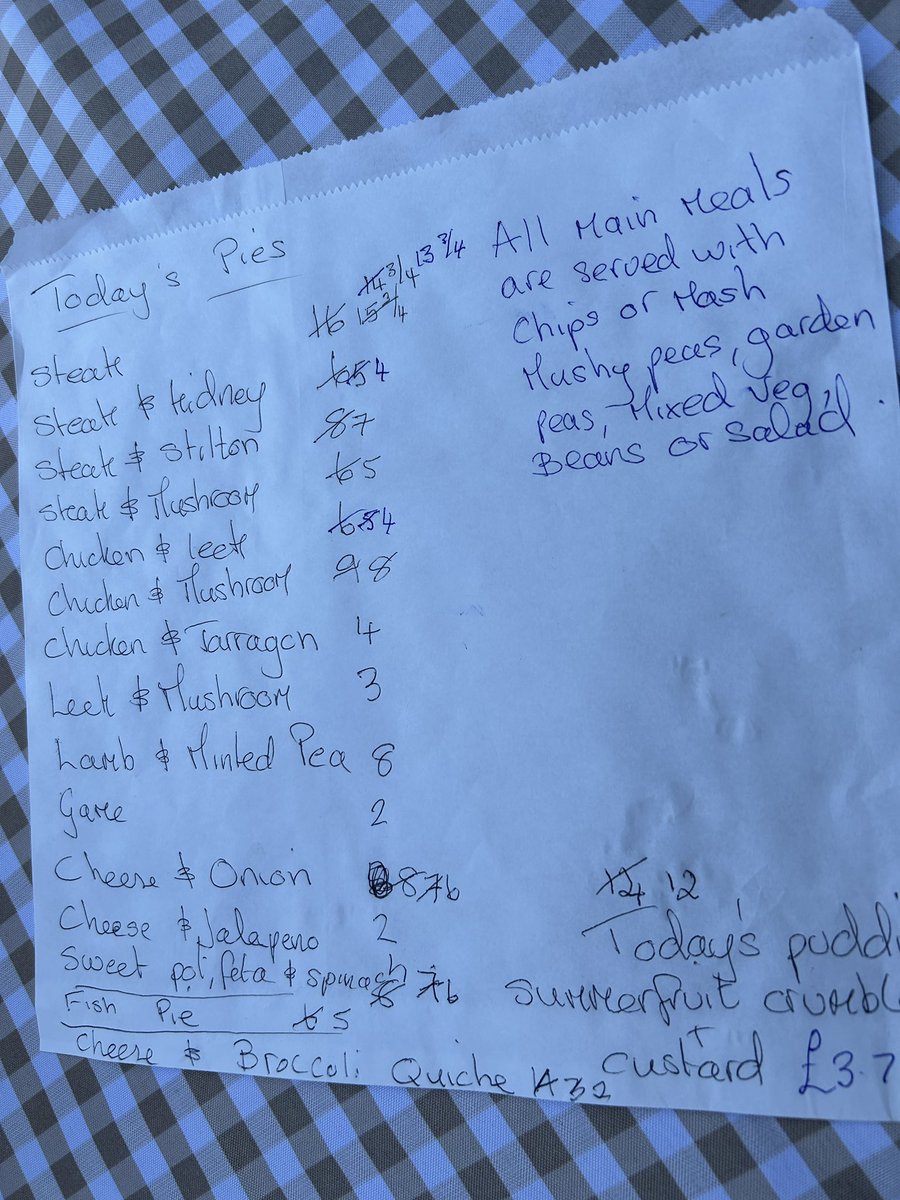 Today's Pies
14 3/4 13 3/4
16 15 3/4
Steak
Steak & Kidney 6 5 4
Steak & Stilton 8 7
Steak & Mushroom 6 5
Chicken & Leek 6 5 4
Chicken & Mushroom 9 8
Chicken & Tarragon 4
Leek & Mushroom 3
Lamb & Minted Pea 8
Game 2
Cheese & Onion 8 7 6
Cheese & Jalapeno 2
Sweet pot, feta & spinach 8 7 6
Fish Pie 6 5
Cheese & Broccoli Quiche 4 3 2
All Main Meals
are served with
Chips or Mash
Mushy peas, garden
peas, Mixed Veg,
Beans or Salad.
12
Today's puddi
Summerfruit crumbl
+
Custard £3.7